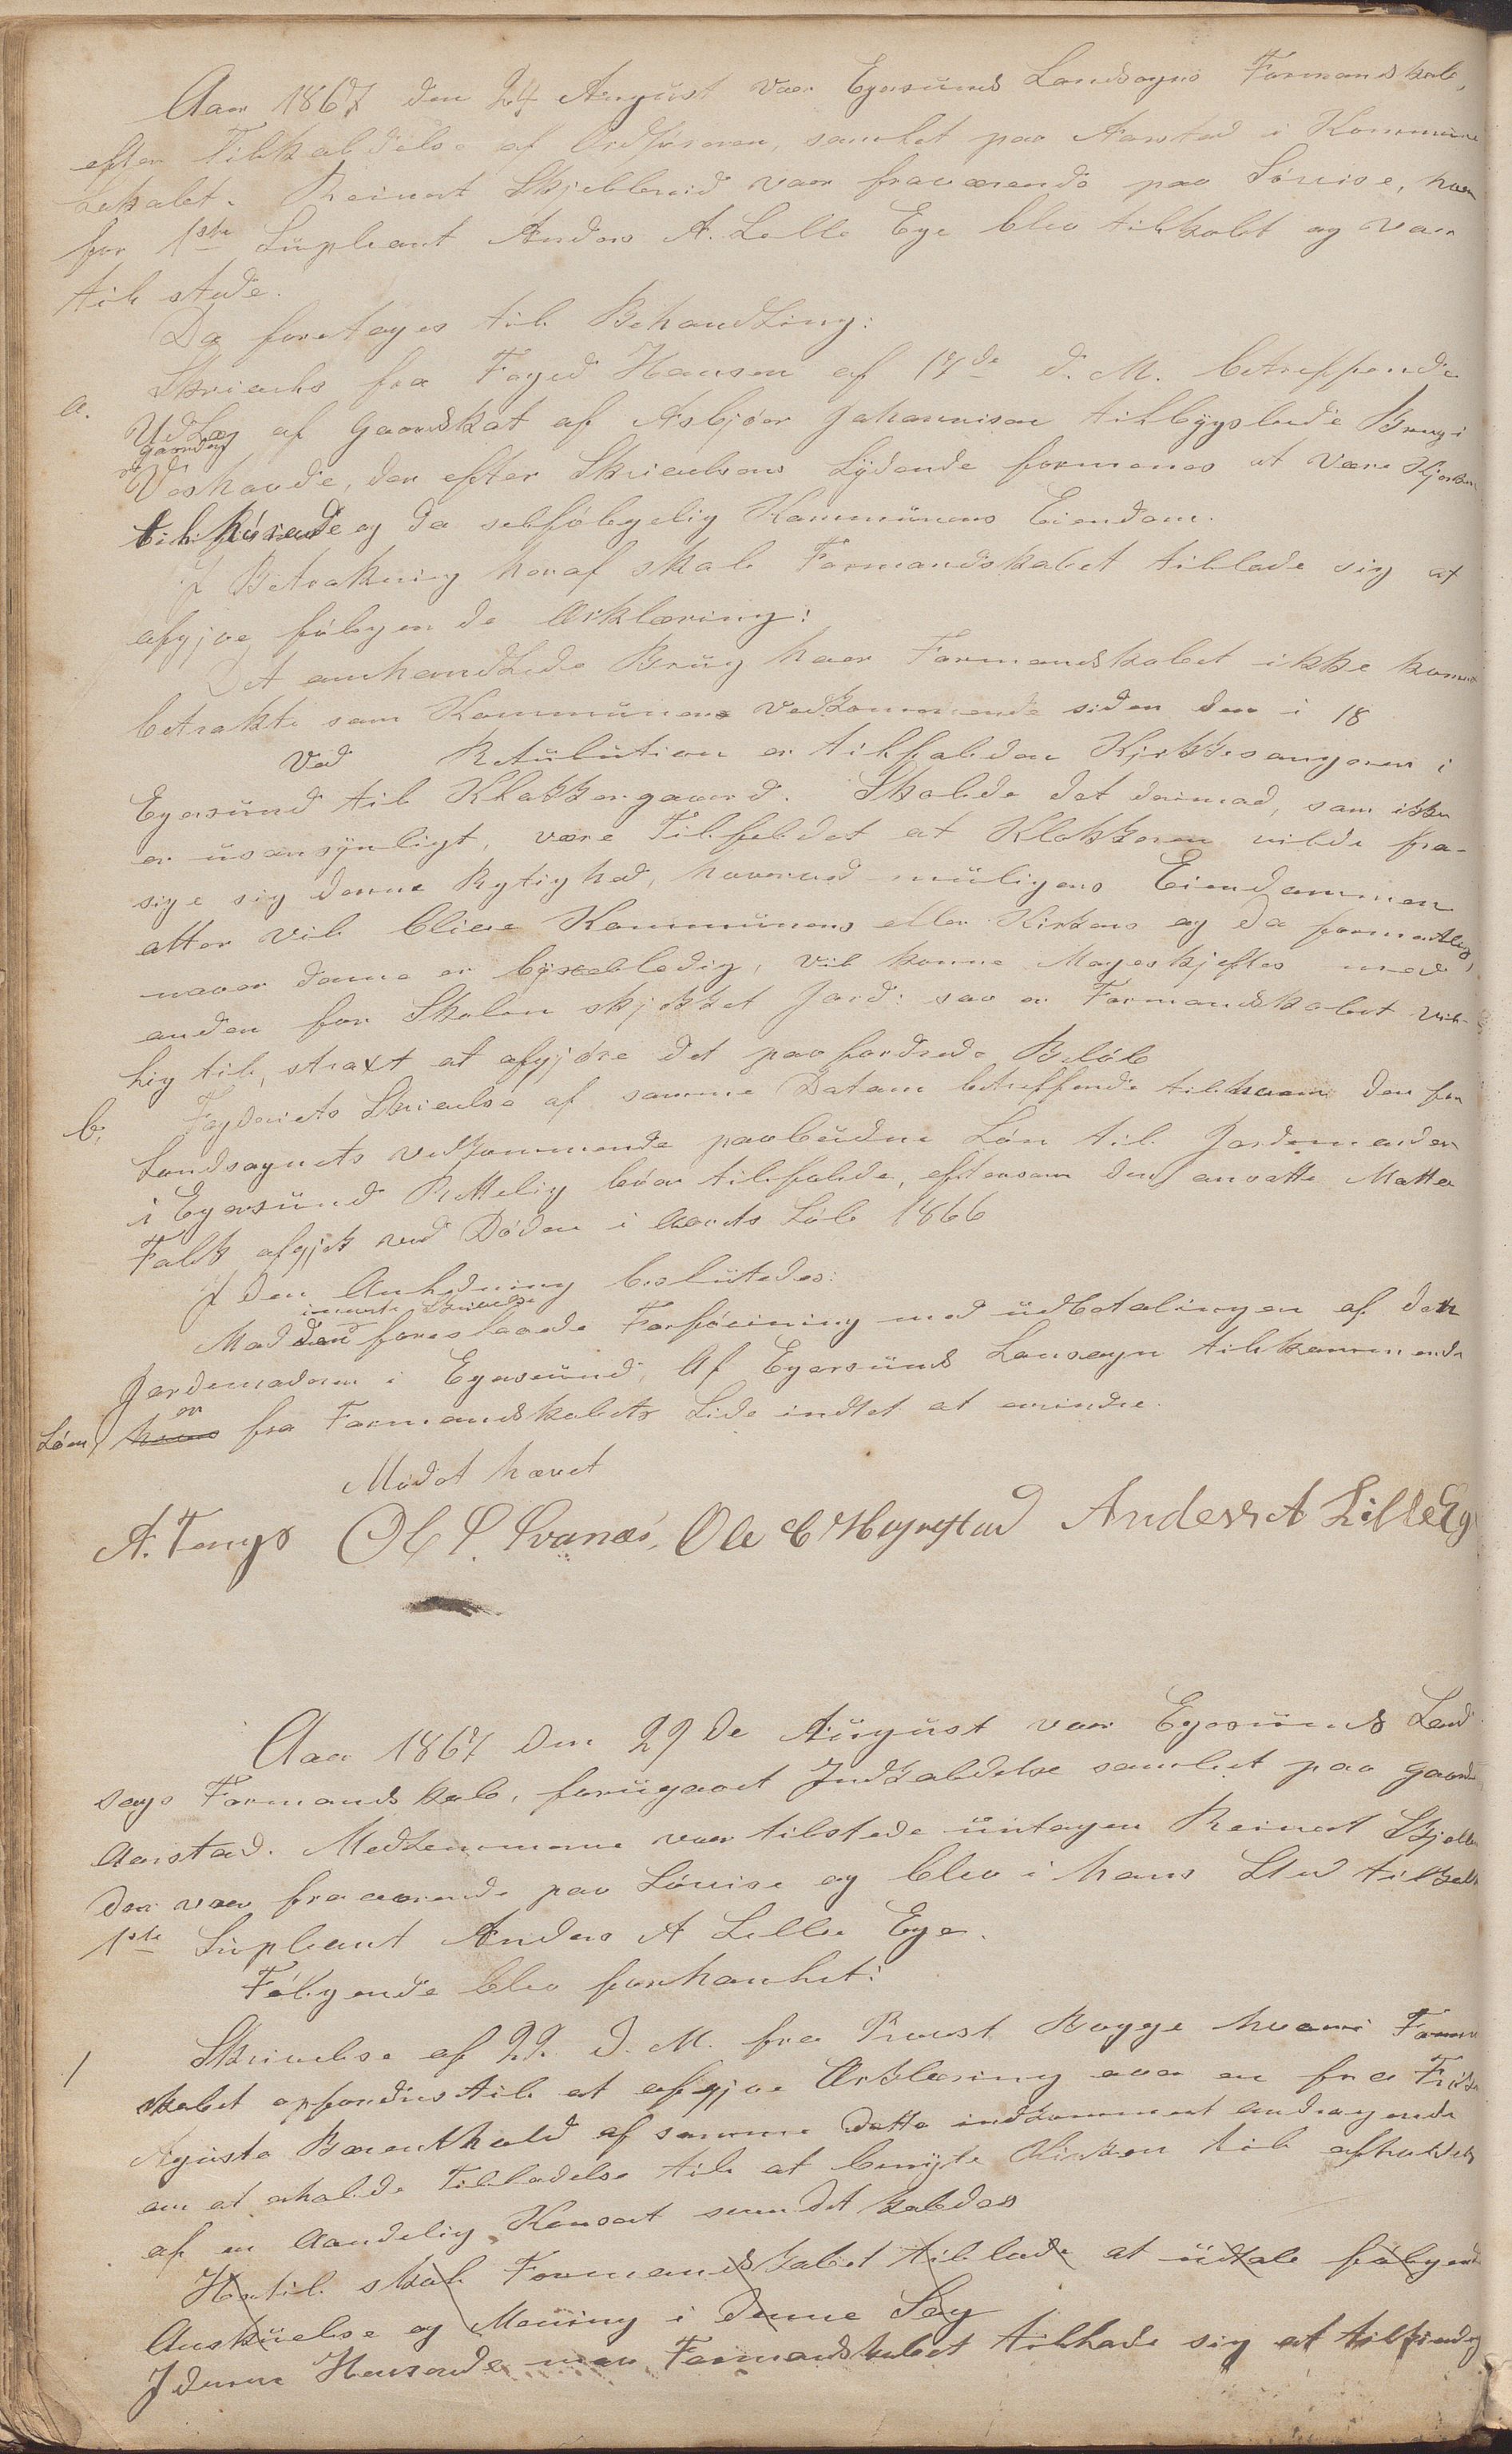 Aar 1867 den 24 August var Egersunds Landsogns Formandskab,
efter Tilkaldelse af Ordføreren, samlet paa Aarstad i Kommune
Lokalet. Reinert Skjelbreid var fraværende paa Søreise, hvor
for 1ste Supleant Anders A. Lelle Ege blev tilkalt og var
til stede.
Da foretoges til Behandling:
a. Skrivelse fra Foged Hansen af 17de d. M. betreffende
Udlæg af Gaardskat af Asbjør Johannison tilbygslede Brug i
Gaarden
Veshovde, der efter Skrivelsens Lydende formenes at være Kjerken
tilhørende og da selføbgelig Kommunens Eiendom.
I Betrakning heraf skal Formandskabet tillade sig at
afgjve følgende Erklæring:
Det anhandlede Brug har Formandskabet ikke kunnet
betrakte som Kommunens Vedkommende siden den i 18
Ved Resulution er tilfalden Kjerkesangeren i
Egersund til Klokkergaard. Skulde det derimod, som ikke
er usansynligt, være Tilfeldet at Klokkeren vilde fra-
sige sig denne Rytighed, hvorved muligens Eiendommen
atter vil blive Kommunens eller Kirkens og da formentlig,
naar denne er bygselledig, vil kunne Mageskjeftes med
anden for Skolen skjikket Jord: saa er Formandskabet vil-
lig til, straxt at afgjøre det paafordrede Beløb
b, Fogderiets Skrivelse af samme Datum betreffende tilhvem den for
Landsognets vedkommende paabudne Løn til Jordemoderen
i Egersund Rettelig bør tilfalde, eftersom den ansatte Matte
Falk afgjek ved Døden i Aarets Løb 1866
I den Anledning besluttedes:
i nævnte Skrivelse
Mod den foreslaaede Forføining med udbetalingen af den
Jordemoderen i Egersund, Af Egersunds Lansogn tilkommende
Løn, er fra Formandskabets Side indtet at erindre.
Mødet hævet
A. Tengs Ol S. Svanæs, Ole E Hegrestad Anders A Lille Eg
Aar 1867 den 29de August var Egersunds Land
sogs Formandskab, forugaaet Indkaldelse samlet paa Gaarden
Aarstad. Medlemmerne var tilstede untagen Reinert Skjelb
der var fraværende paa Søreise og blev i hans Sted tilkalt
1ste Supleant Anders A Lelle Ege.
Følgende blev forhanlet:
1 Skrivelse af 22 d. M. fra Provst Bugge hvori Forman
skabet opfordres til at afgjve Erklæring over en fra Frøken
Agusta Barenthold af samme Datto indkommet Andragende
om at erholde Tilladelse til at benytte Kirken til afholdels
af en Aandelig Konsert som det kaldes
Hertil skal Formandskabet tillade at udtale følgende
Anskuelse og Mening i denne Sag
I denne Henseende maa Formandskabet tillade sig at